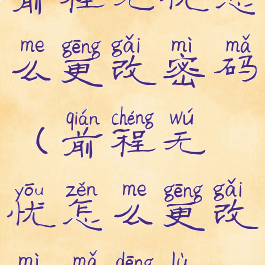 前程无忧怎
me gēng gǎi mì mǎ
么更改密码
qián chéng wú
(前程无
yōu zěn me gēng gǎi
忧怎么更改
mì mǎ dēng lù